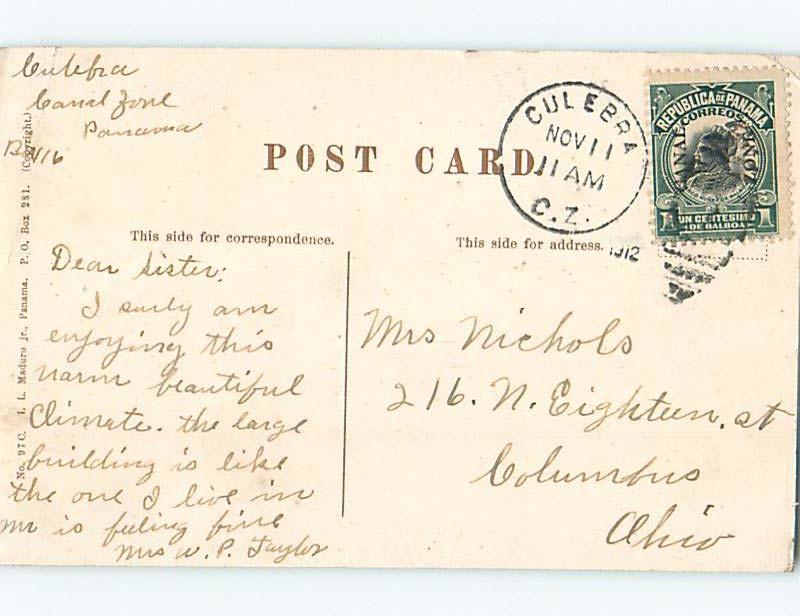 Culebra
Canal Zone
Panama
B 416
POST CARD.
CULEBRA
NOV 11
11 AM
C.Z.
1912
REPUBLICA DE PANAMA
CORREOS
CANAL ZONE
1 UN CENTESIMO 1
DE BALBOA
This side for correspondence.
This side for address.
No. 97 C. I. L. Maduro jr., Panama. P. O. Box 281. (Copyright.)
Dear Sister:
I surly am
enjoying this
warm beautiful
Climate. the large
building is like
the one I live in
Mr is feeling fine
Mrs W. P. Taylor
Mrs Nichols
216. N. Eighteen. st
Columbus
Ohio